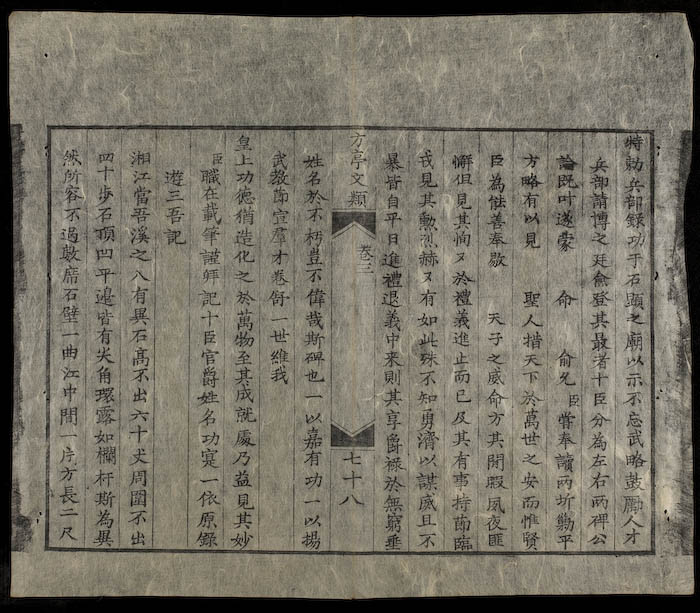 特勅兵部錄功于石題之廟以示不忘武略鼓勵人才
兵部請博之廷僉登其最者十臣分為左右兩碑公
論既叶遂蒙 命 俞允臣嘗奉讀兩圻勦平
方略有以見 聖人措天下於萬世之安而惟賢
臣為能善奉 天子之威命方其閒暇夙夜匪
懈但見其恂又於禮義進止而已及其有事持節臨
戎見其勲烈赫又有如此殊不知勇濟以謀威且不
暴皆自平日進禮退義中來則其享爵祿於無窮垂
方亭文類 卷三 七十八
姓名於不朽豈不偉哉斯碑也一以嘉有功一以揚
武教節宣羣才卷舒一世維我
皇上功德猶造化之於萬物至其成就處乃益見其妙
臣職在載筆謹拜記十臣官爵姓名功寔一依原錄
遊三吾記
湘江當吾溪之八有異石高不出六十丈周圍不出
四十步石頂凹平邉皆有尖角環露如欄杆斯為異
然所容不過數席石壁一曲江中間一片方長二尺